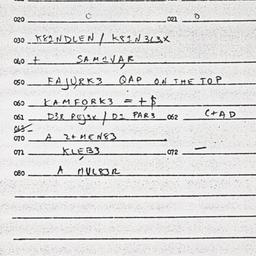 020 C 021 D
030 K8INDLEN / K8IN3L3X
040 + SAMOVAR
050 FAJURK3 QAP ON THE TOP
060 KAMFORK3 = + $
061 D3R REJ3X / DI PAR3 062 C+AD
063
070 A 2+MENE3
071 KLEB3 072 —
080 A MUL83R